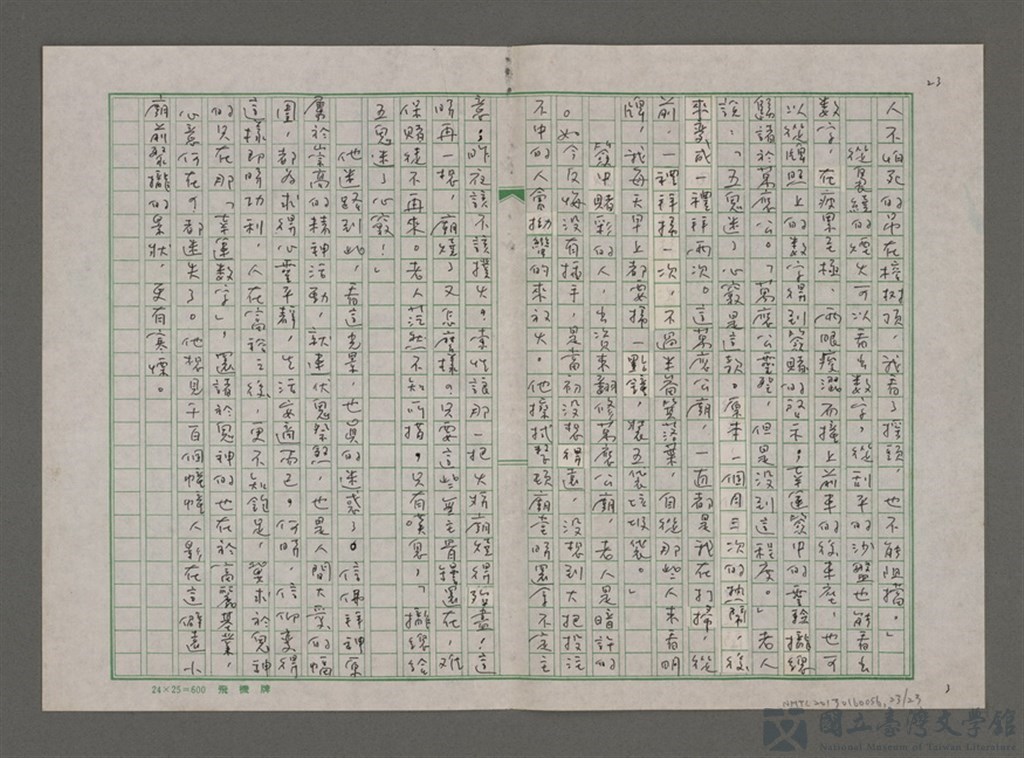 23
人不怕死的吊在樟樹頂，我看了搖頭，也不能阻擋。」
從裊繞的煙火可以看出數字，從刮平的沙盤也能看出
數字，在疲累至極，兩眼痠澀而撞上前車的後車座，也可
以從牌照上的數字得到簽賭的啟示；幸運簽中的靈驗攏總
歸諸於萬應公。「萬應公靈聖，但是沒到這程度。」老人
說：「五鬼迷了心竅是這款。原本一個月三次的熱鬧，後
來變成一禮拜兩次。這萬應公廟，一直都是我在打掃，從
前，一禮拜掃一次，不過半畚箕落葉，自從那些人來看明
牌，我每天早上都要掃一點鐘，裝五袋垃圾袋。」
簽中賭彩的人，出資來翻修萬應公廟，老人是暗許的
。如今反悔沒有插手，是當初沒想得遠，沒想到大把投注
不中的人會拗蠻的來放火。他擦拭整頓廟堂時還拿不定主
意；昨夜該不該撲火？索性讓那一把火將廟燒得殆盡；這
時再一想，廟燒了又怎麼樣？只要這些無主骨骸還在，难
保賭徒不再來。老人茫然不知所措，只有嘆息，「攏總給
五鬼迷了心竅！」
他迷路到此，看這光景，也真的迷惑了。信佛拜神原
屬於崇高的精神活動，就連伏鬼祭煞，也是人間大愛的幅
圍，都為求得心靈平靜，生活安適而已。何時，信仰變得
這樣即時功利，人在富裕之後，更不知飽足，冀求於鬼神
的只在那「幸運數字」，還諸於鬼神的也在於高築基業，
心意何在？都迷失了。他想見千百個幢幢人影在這僻遠小
廟前聚攏的景狀，更有寒慄。
24×25=600 飛機牌
3
NMTL20130160056, 23/23
國立臺灣文學館
National Museum of Taiwan Literature